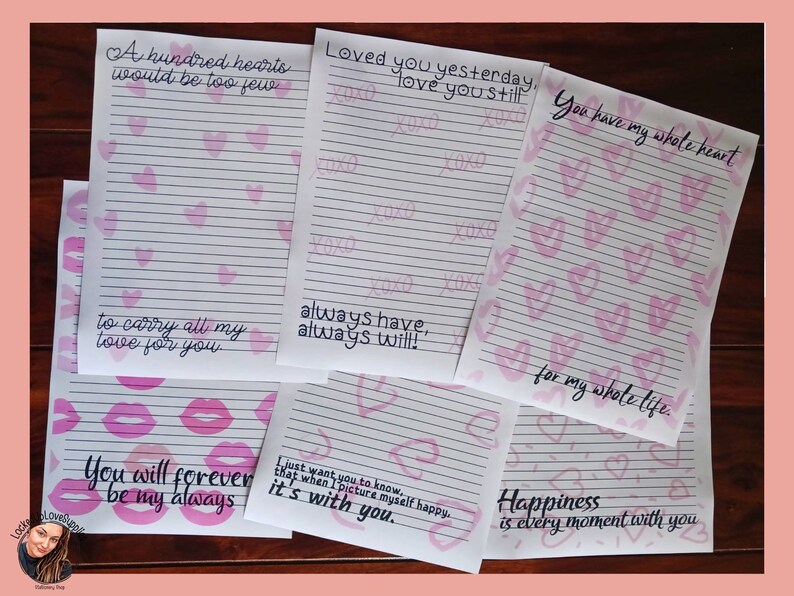 A hundred hearts
would be too few
to carry all my
love for you.
Loved you yesterday,
love you still
XOXO
XOXO
XOXO
XOXO
XOXO
XOXO
XOXO
XOXO
XOXO
XOXO
XOXO
always have,
always will!
You have my whole heart
for my whole life.
You will forever
be my always
I just want you to know,
that when I picture myself happy,
it's with you.
Happiness
is every moment with you
LockedUpLoveSupply
Stationery Shop